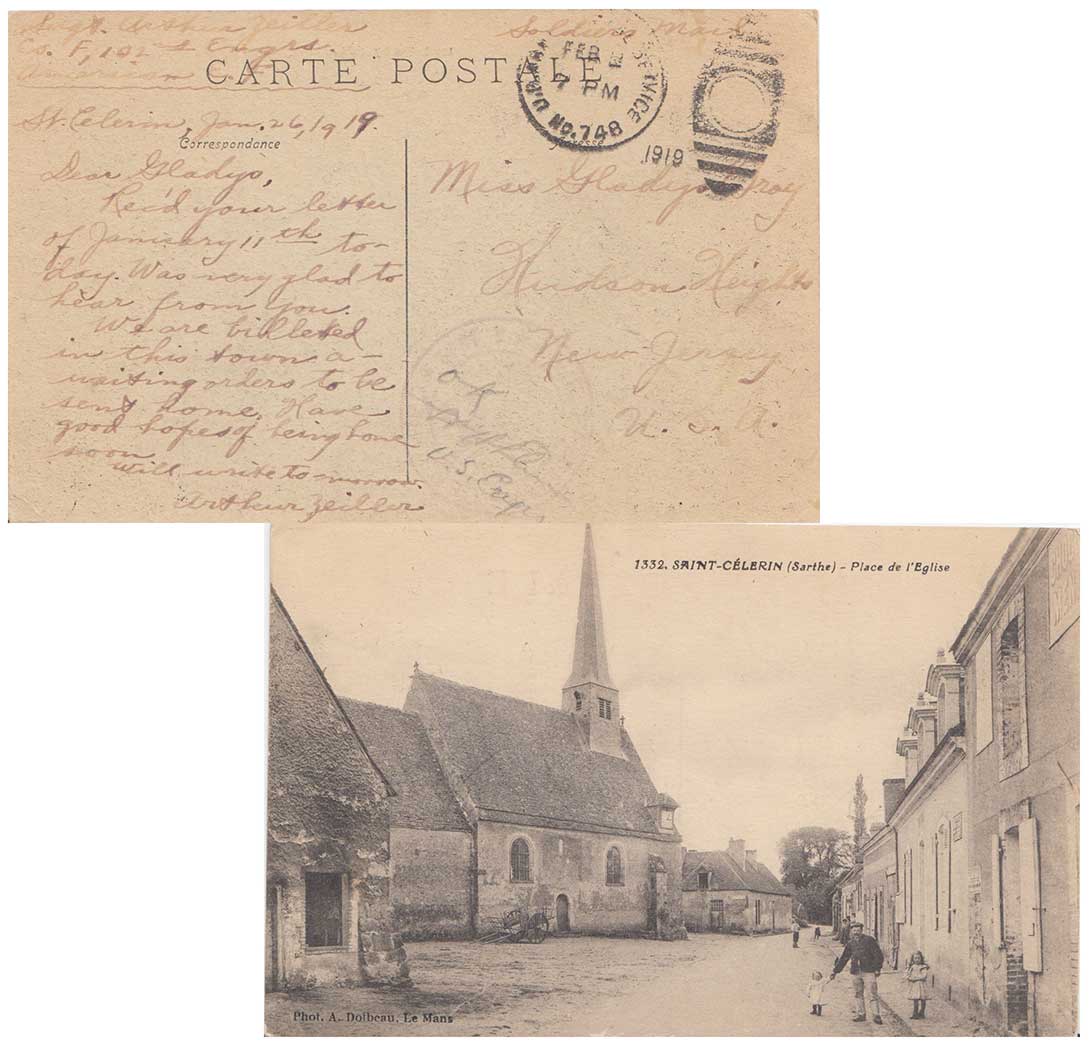 Sgt. Arthur Zeiller
Soldiers Mail
Co. F, 102nd Engrs.
American
CARTE POSTALE
FEB
7 PM
SERVICE
No. 748
1919
St. Celerin, Jan. 26, 1919.
Correspondance
Dear Gladys,
Rec'd your letter
of January 11th to-
day. Was very glad to
hear from you.
We are billeted
in this town a-
waiting orders to be
sent home. Have
good hopes of being home
soon
Will write to-morrow.
Arthur Zeiller
Miss Gladys Gray
Hudson Heights
New Jersey
U. S. A.
OK
U.S. Engr.
1332. SAINT-CÉLERIN (Sarthe) - Place de l'Eglise
Phot. A. Dolbeau, Le Mans